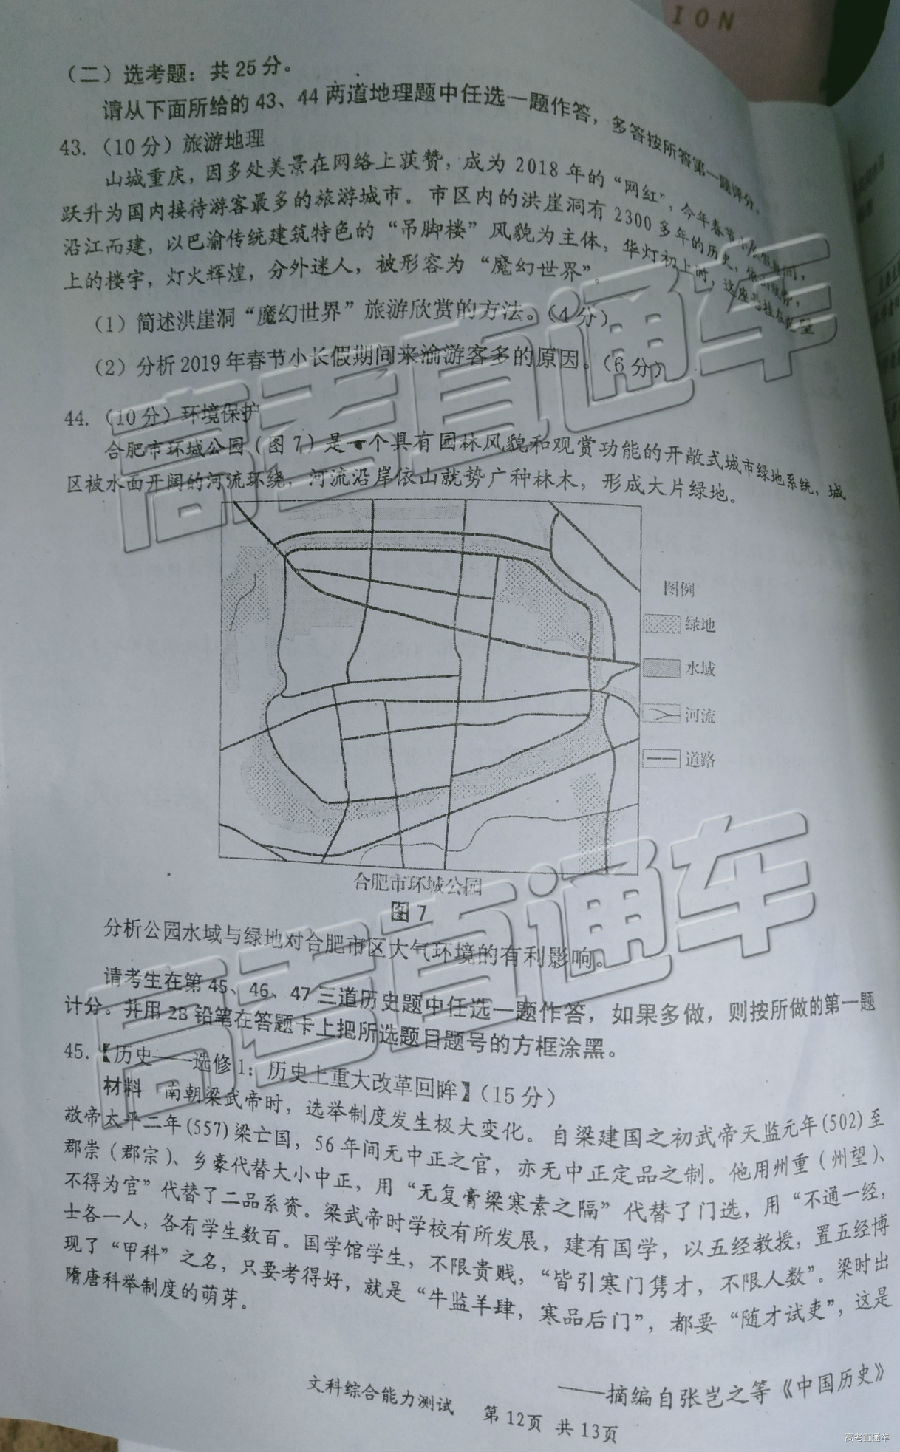 ION
(二)选考题：共25分。
请从下面所给的43、44两道地理题中任选一题作答，多答按所答第一题评分。
43.(10分)旅游地理
山城重庆，因多处美景在网络上获赞，成为2018年的“网红”，今年春节小长假期间，
跃升为国内接待游客最多的旅游城市。市区内的洪崖洞有2300多年的历史，
沿江而建，以巴渝传统建筑特色的“吊脚楼”风貌为主体，华灯初上时，这座
上的楼宇，灯火辉煌，分外迷人，被形容为“魔幻世界”。
(1)简述洪崖洞“魔幻世界”旅游欣赏的方法。(4分)
(2)分析2019年春节小长假期间来渝游客多的原因。(6分)
44.(10分)环境保护
合肥市环城公园(图7)是一个具有园林风貌和观赏功能的开敞式城市绿地系统，城
区被水面开阔的河流环绕，河流沿岸依山就势广种林木，形成大片绿地。
图例
绿地
水域
河流
道路
合肥市环城公园
图7
分析公园水域与绿地对合肥市区大气环境的有利影响。
请考生在第45、46、47三道历史题中任选一题作答，如果多做，则按所做的第一题
计分。并用2B铅笔在答题卡上把所选题目题号的方框涂黑。
45.【历史——选修1：历史上重大改革回眸】(15分)
材料 南朝梁武帝时，选举制度发生极大变化。自梁建国之初武帝天监元年(502)至
敬帝太平二年(557)梁亡国，56年间无中正之官，亦无中正定品之制。他用州重(州望)、
郡崇(郡宗)、乡豪代替大小中正，用“无复膏粱寒素之隔”代替了门选，用“不通一经，
不得为官”代替了二品系资。梁武帝时学校有所发展，建有国学，以五经教授，置五经博
士各一人，各有学生数百。国学馆学生，不限贵贱，“皆引寒门隽才，不限人数”。梁时出
现了“甲科”之名，只要考得好，就是“牛监羊肆，寒品后门”，都要“随才试吏”，这是
隋唐科举制度的萌芽。
——摘编自张岂之等《中国历史》
文科综合能力测试 第12页 共13页
高考直通车
高考直通车
高考直通车